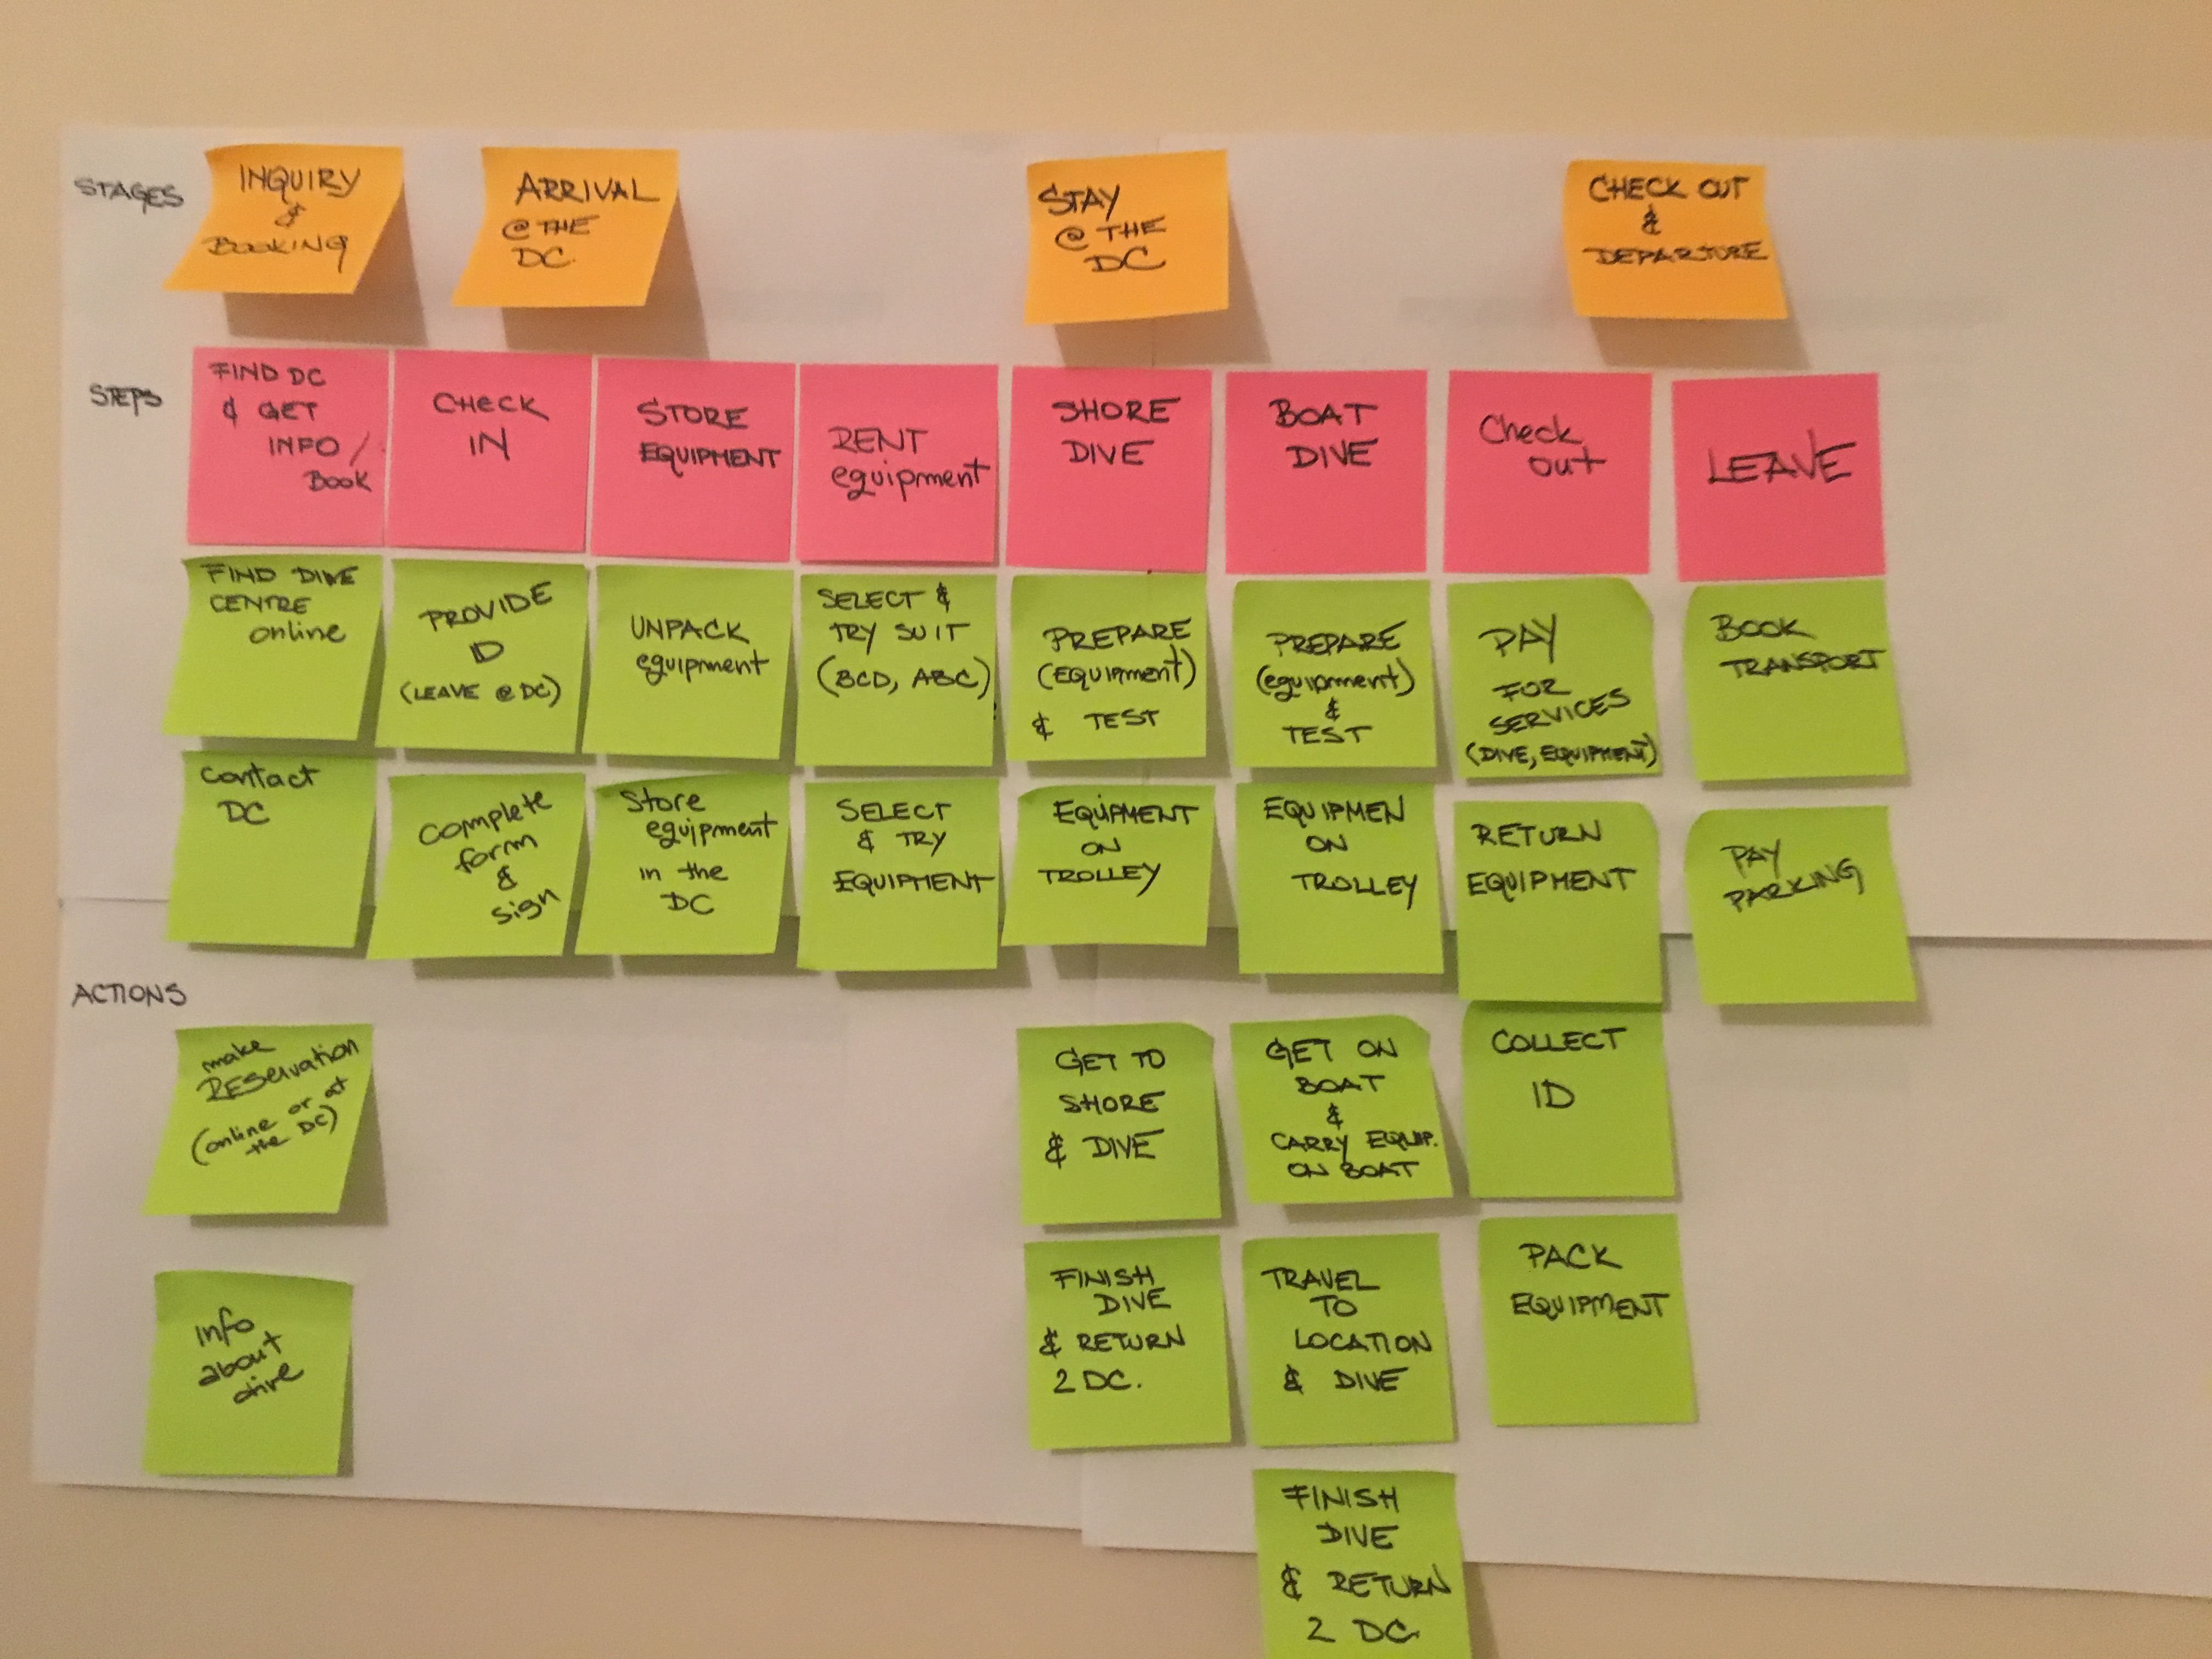 STAGES
INQUIRY
&
BOOKING
ARRIVAL
@ THE
DC
STAY
@ THE
DC
CHECK OUT
&
DEPARTURE
STEPS
FIND DC
& GET
INFO /
BOOK
CHECK
IN
STORE
EQUIPMENT
RENT
equipment
SHORE
DIVE
BOAT
DIVE
Check
out
LEAVE
FIND DIVE
CENTRE
online
PROVIDE
ID
(LEAVE @ DC)
UNPACK
equipment
SELECT &
TRY SUIT
(BCD, ABC)
PREPARE
(EQUIPMENT)
& TEST
PREPARE
(equipment)
&
TEST
PAY
FOR
SERVICES
(DIVE, EQUIPMENT)
BOOK
TRANSPORT
Contact
DC
Complete
form
&
sign
Store
equipment
in the
DC
SELECT
& TRY
EQUIPMENT
EQUIPMENT
ON
TROLLEY
EQUIPMEN
ON
TROLLEY
RETURN
EQUIPMENT
PAY
PARKING
ACTIONS
make
RESERVATION
(online or at
the DC)
GET TO
SHORE
& DIVE
GET ON
BOAT
&
CARRY EQUIP.
ON BOAT
COLLECT
ID
Info
about
dive
FINISH
DIVE
& RETURN
2 DC.
TRAVEL
TO
LOCATION
& DIVE
PACK
EQUIPMENT
FINISH
DIVE
& RETURN
2 DC